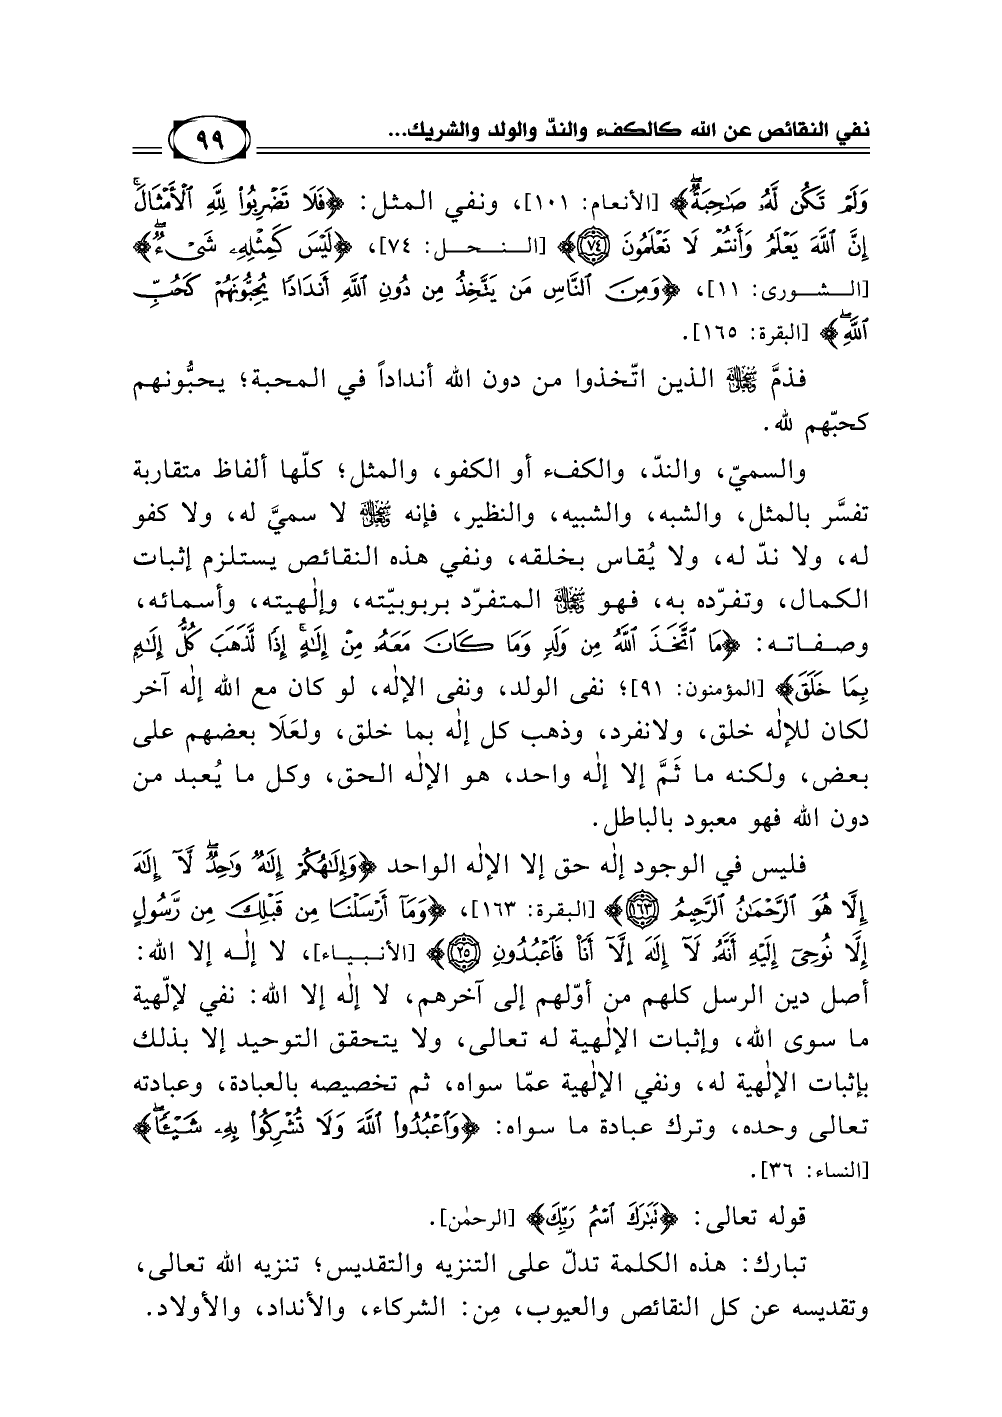 نفي النقائص عن الله كالكفء والندّ والولد والشريك...
٩٩
وَلَمْ تَكُن لَّهُۥ صَٰحِبَةٌۖ﴾ [الأنعام: ١٠١]، ونفي المثل: ﴿فَلَا تَضْرِبُوا۟ لِلَّهِ ٱلْأَمْثَالَۚ
إِنَّ ٱللَّهَ يَعْلَمُ وَأَنتُمْ لَا تَعْلَمُونَ ٧٤﴾ [النحل: ٧٤]، ﴿لَيْسَ كَمِثْلِهِۦ شَىْءٌۖ﴾
[الشورى: ١١]، ﴿وَمِنَ ٱلنَّاسِ مَن يَتَّخِذُ مِن دُونِ ٱللَّهِ أَندَادًا يُحِبُّونَهُمْ كَحُبِّ
ٱللَّهِۖ﴾ [البقرة: ١٦٥].
فذمَّ ﷾ الذين اتّخذوا من دون الله أنداداً في المحبة؛ يحبُّونهم
كحبّهم لله.
والسميّ، والندّ، والكفء أو الكفو، والمثل؛ كلّها ألفاظ متقاربة
تفسَّر بالمثل، والشبه، والشبيه، والنظير، فإنه ﷾ لا سميَّ له، ولا كفو
له، ولا ندّ له، ولا يُقاس بخلقه، ونفي هذه النقائص يستلزم إثبات
الكمال، وتفرّده به، فهو ﷾ المتفرّد بربوبيّته، وإلٰهيته، وأسمائه،
وصفاته: ﴿مَا ٱتَّخَذَ ٱللَّهُ مِن وَلَدٍ وَمَا كَانَ مَعَهُۥ مِنْ إِلَٰهٍۚ إِذًا لَّذَهَبَ كُلُّ إِلَٰهٍۭ
بِمَا خَلَقَ﴾ [المؤمنون: ٩١]؛ نفى الولد، ونفى الإلٰه، لو كان مع الله إلٰه آخر
لكان للإلٰه خلق، ولانفرد، وذهب كل إلٰه بما خلق، ولعَلَا بعضهم على
بعض، ولكنه ما ثَمَّ إلا إلٰه واحد، هو الإلٰه الحق، وكل ما يُعبد من
دون الله فهو معبود بالباطل.
فليس في الوجود إلٰه حق إلا الإلٰه الواحد ﴿وَإِلَٰهُكُمْ إِلَٰهٌ وَٰحِدٌۖ لَّآ إِلَٰهَ
إِلَّا هُوَ ٱلرَّحْمَٰنُ ٱلرَّحِيمُ ١٦٣﴾ [البقرة: ١٦٣]، ﴿وَمَآ أَرْسَلْنَا مِن قَبْلِكَ مِن رَّسُولٍ
إِلَّا نُوحِىٓ إِلَيْهِ أَنَّهُۥ لَآ إِلَٰهَ إِلَّآ أَنَا۠ فَٱعْبُدُونِ ٢٥﴾ [الأنبياء]، لا إلٰه إلا الله:
أصل دين الرسل كلهم من أوّلهم إلى آخرهم، لا إلٰه إلا الله: نفي لإلٰهية
ما سوى الله، وإثبات الإلٰهية له تعالى، ولا يتحقق التوحيد إلا بذلك
بإثبات الإلٰهية له، ونفي الإلٰهية عمّا سواه، ثم تخصيصه بالعبادة، وعبادته
تعالى وحده، وترك عبادة ما سواه: ﴿وَٱعْبُدُوا۟ ٱللَّهَ وَلَا تُشْرِكُوا۟ بِهِۦ شَيْـًٔاۖ﴾
[النساء: ٣٦].
قوله تعالى: ﴿تَبَٰرَكَ ٱسْمُ رَبِّكَ﴾ [الرحمٰن].
تبارك: هذه الكلمة تدلّ على التنزيه والتقديس؛ تنزيه الله تعالى،
وتقديسه عن كل النقائص والعيوب، مِن: الشركاء، والأنداد، والأولاد.